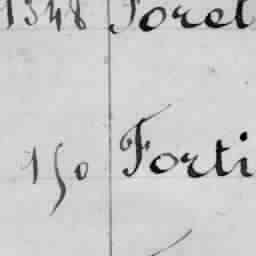 1348 Forel
150 Forti